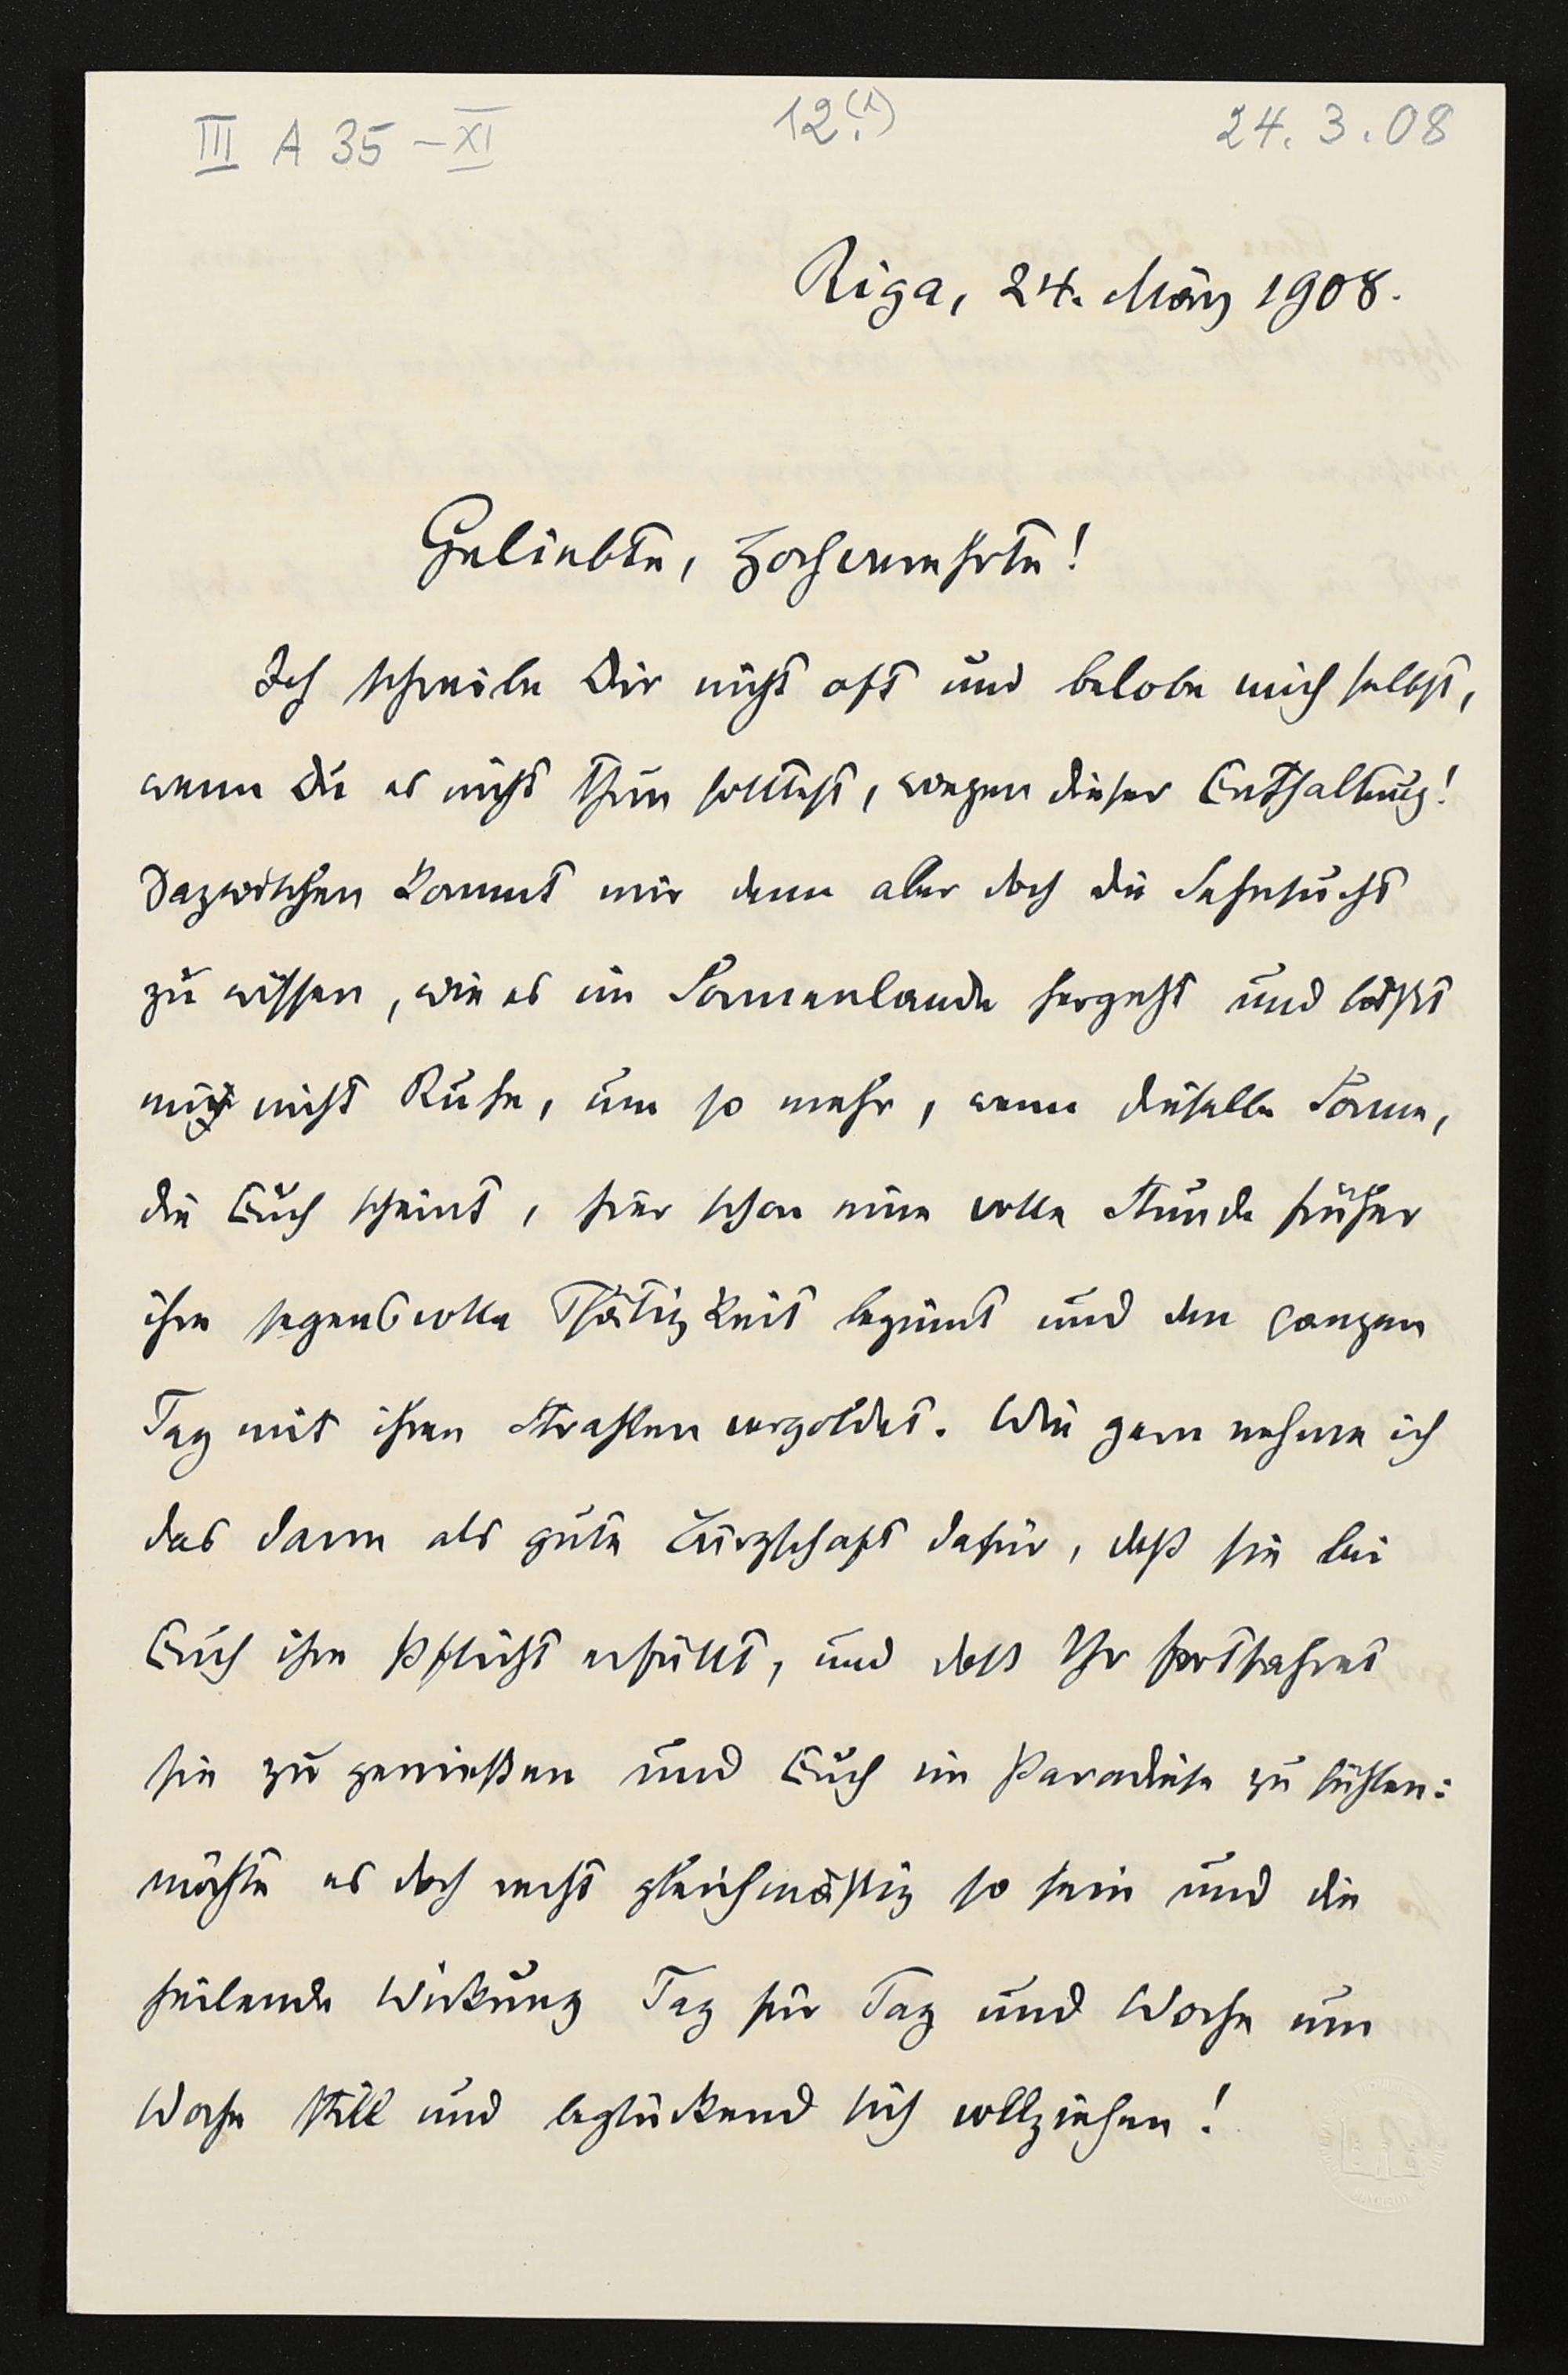 III A 35 – XI
12.(1)
24. 3. 08
Riga, 24. März 1908.
Geliebte, Hochverehrte!
Ich schreibe Dir nicht oft und belobe mich selbst,
wenn Du es nicht thun solltest, wegen dieser Enthaltung!
Dazwischen kommt mir denn aber doch die Sehnsucht
zu wissen, wie es im Sonnenlande hergeht und läßt
mir nicht Ruhe, um so mehr, wenn dieselbe Sonne,
die Euch scheint, hier schon eine volle Stunde früher
ihre segensvolle Thätigkeit beginnt und den ganzen
Tag mit ihren Strahlen vergoldet. Wie gern nehme ich
das dann als gute Bürgschaft dafür, daß sie bei
Euch ihre Pflicht erfüllt, und daß Ihr fortfahret
sie zu genießen und Euch im Paradiese zu fühlen:
möchte es doch recht gleichmäßig so sein und die
heilende Wirkung Tag für Tag und Woche um
Woche still und beglückend sich vollziehen!